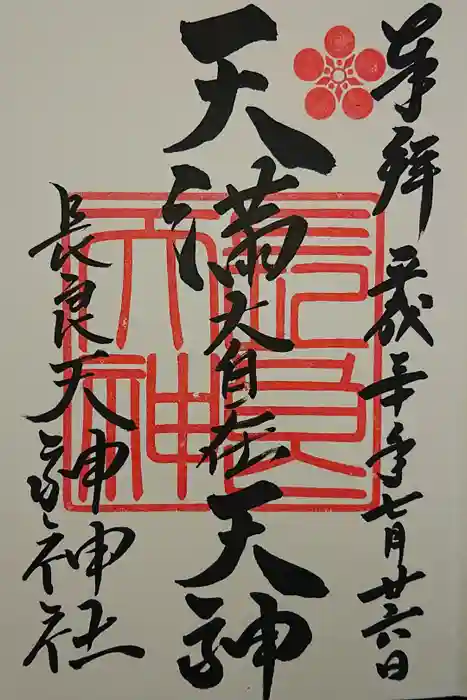 奉拝 平成三十年七月廿六日
天満大自在天神
長良天神神社
長良
天神